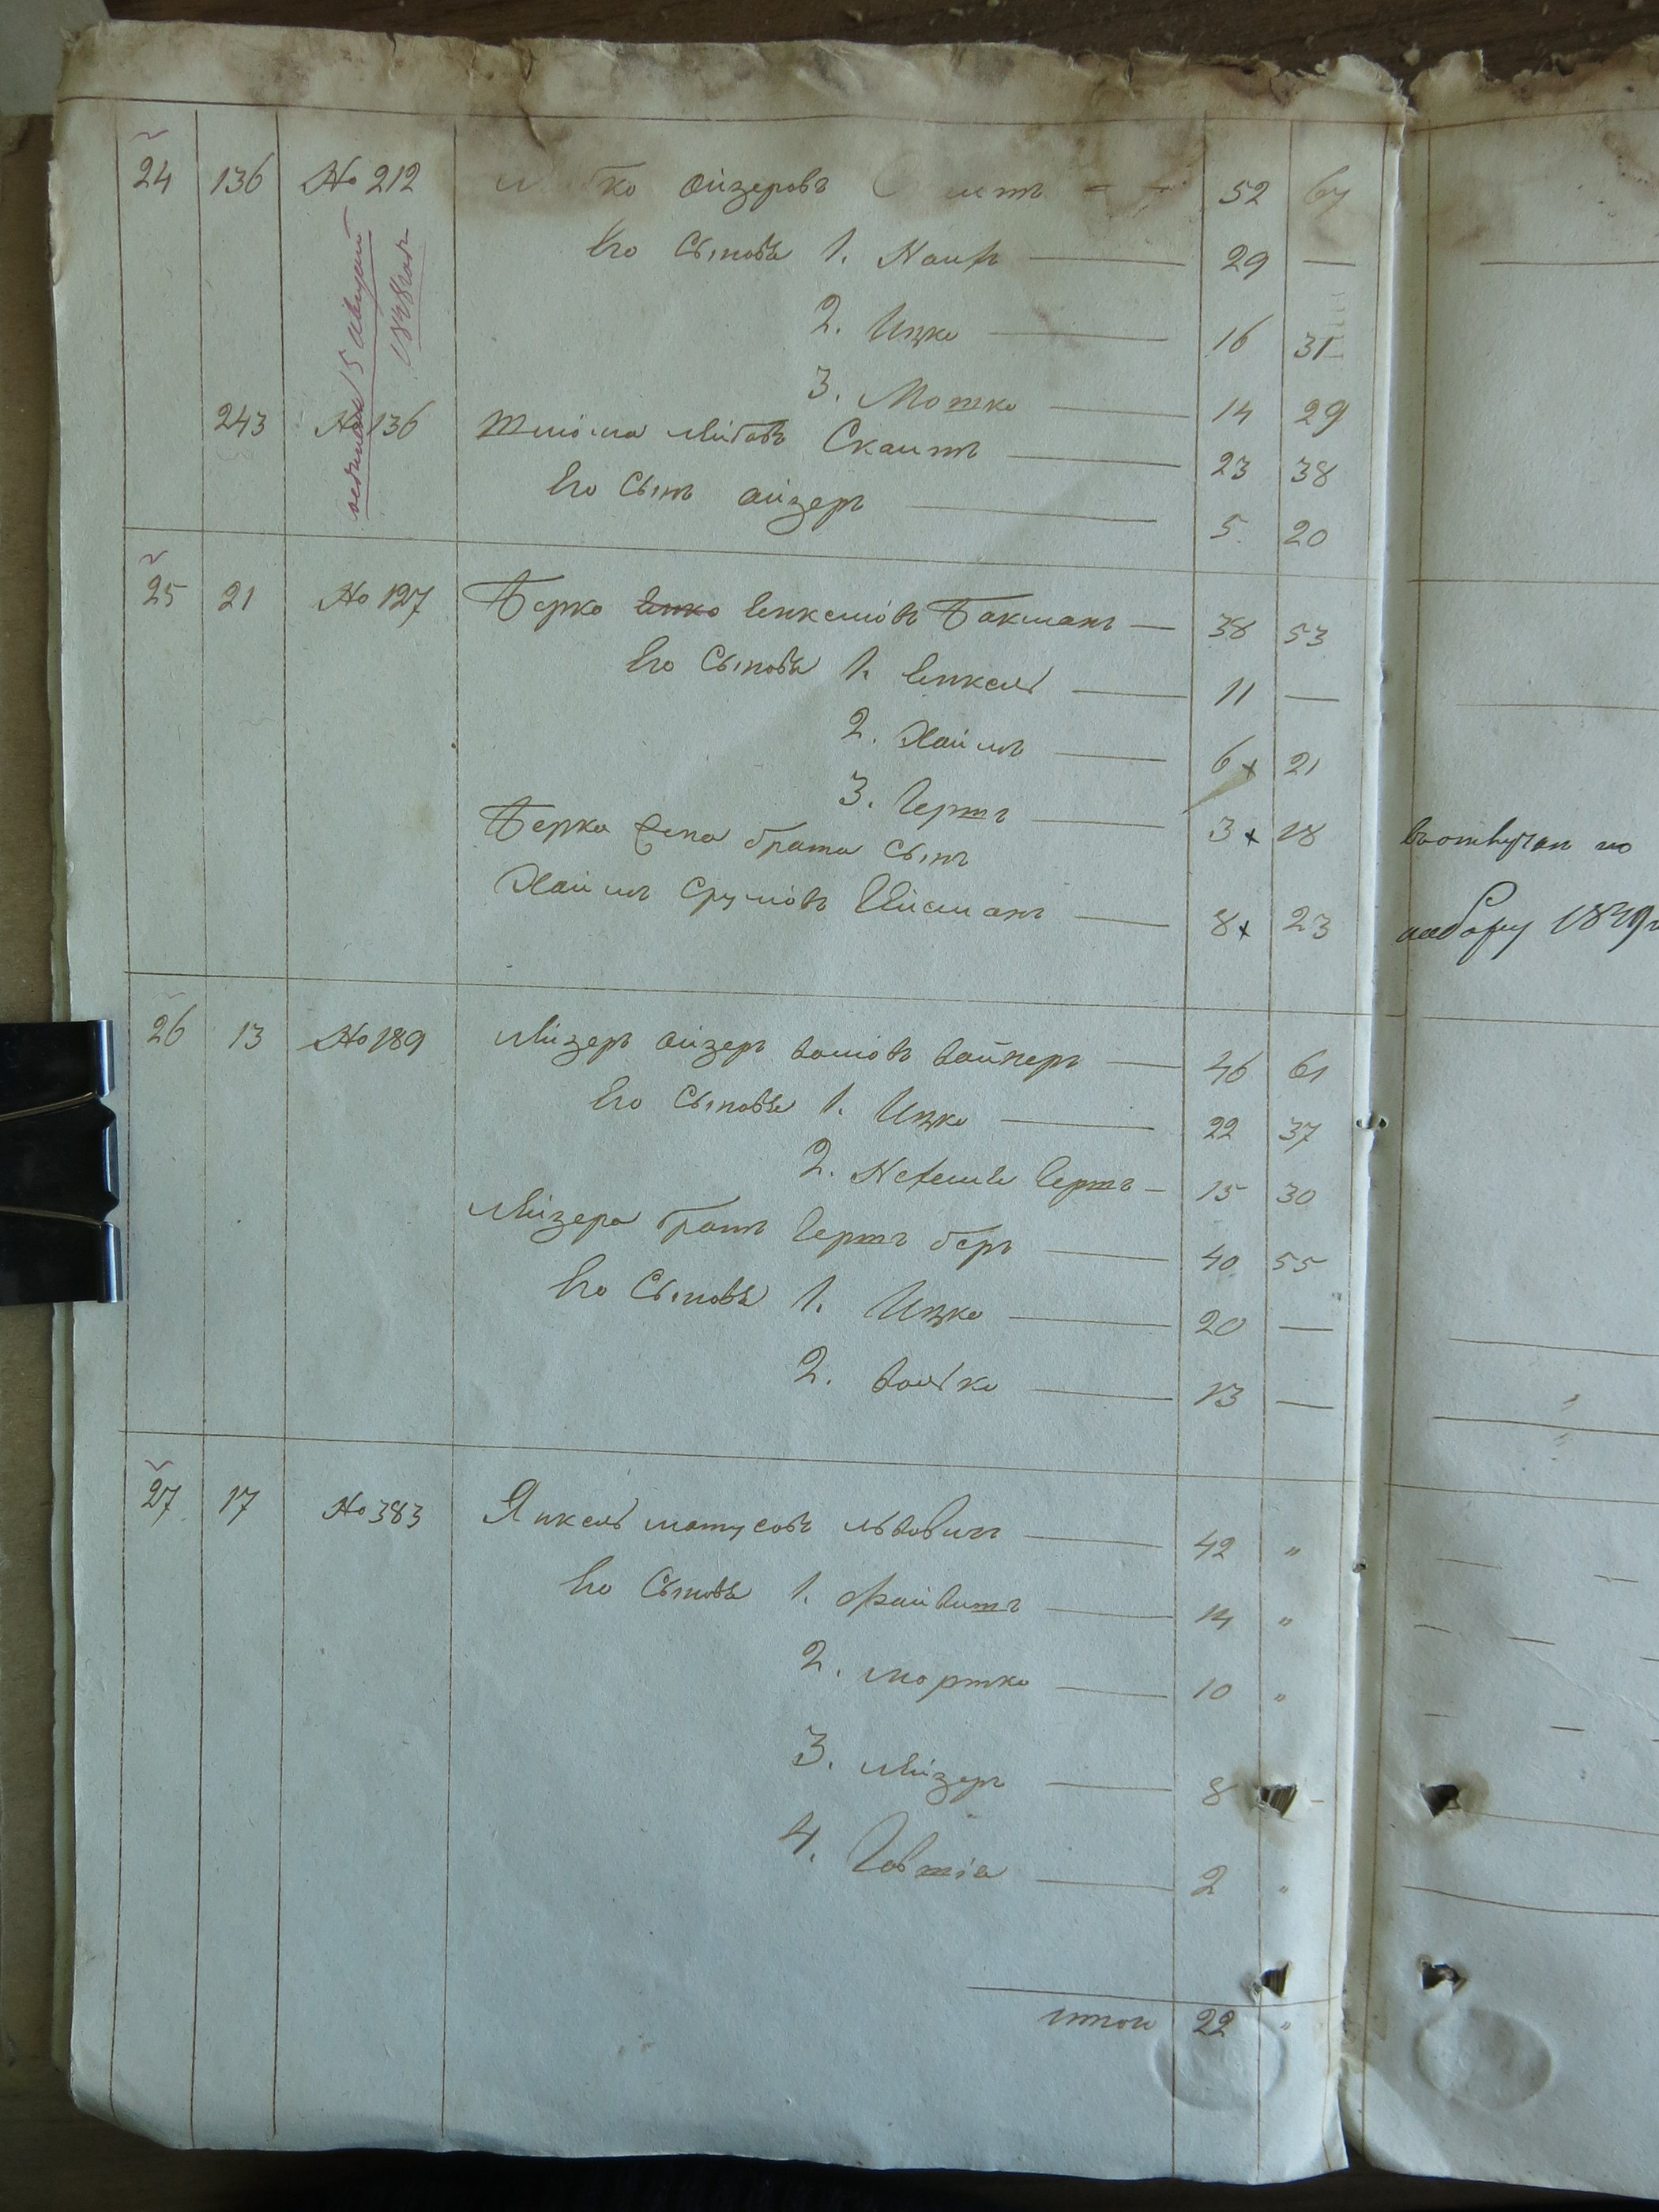 24 136 № 212 Айзеровъ 52 67
Его Сыновья 1. 29 —
2. Ицко 16 31
3. Мошко 14 29
243 № 136 Скаитъ 23 38
Его Сынъ Айзеръ 5 20
15 Августа
1848 года
25 21 № 127 Берко Енкелювъ Бакманъ — 38 53
Его Сыновья 1. Енкель 11 —
2. Хаимъ 6 x 21
3. Гершъ 3 x 18
Берка брата Сынъ
Хаимъ Срулювъ 8 x 23
26 13 № 189 Лейзеръ Айзеръ Волювъ Вайнеръ 46 61
Его Сыновья 1. Ицко 22 37
2. Гершъ — 15 30
Лейзера братъ Гершъ Беръ 40 55
Его Сыновья 1. Ицко 20 —
2. Волько 13 —
27 17 № 383 Янкель Матусовъ Львовичъ 42 "
Его Сыновья 1. Файвишъ 14 "
2. Мортко 10 "
3. Лейзеръ 8
4. Говшія 2 "
итого 22 "
по
набору